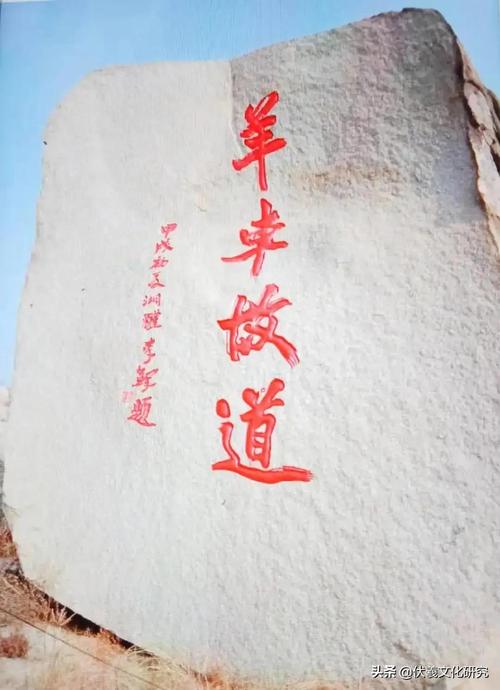 羊车故道
甲戌初夏湘醴李铎题
头条 @伏羲文化研究